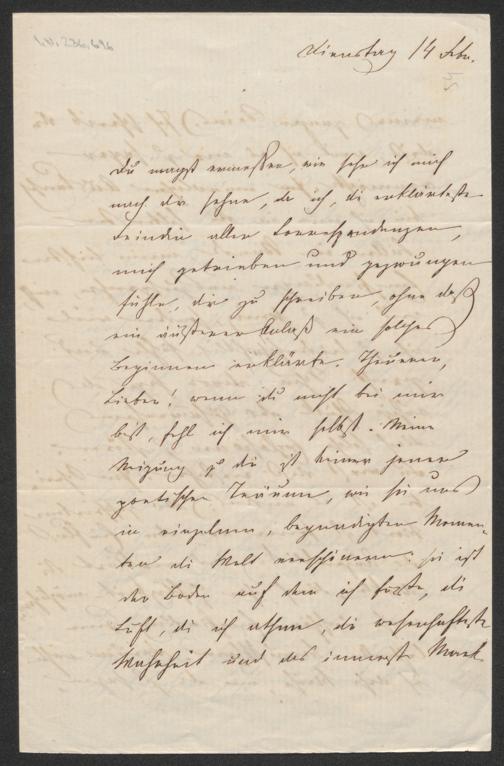 I.N. 236.696
Dienstag 14 Febr.
Du magst ermessen, wie sehr ich mich
nach dir sehne, da ich, die erklärteste
Feindin aller Correspondenzen,
mich getrieben und gezwungen
fühle, dir zu schreiben, ohne daß
ein äußerer Anlaß ein solches
Beginnen erklärte. Theurer,
Lieber! wenn du nicht bei mir
bist, fehl ich mir selbst. Meine
Neigung zu dir ist keiner jener
poetischen Träume, wie sie uns
in einzelnen, begnadigten Momen-
ten die Welt verschönern: sie ist
der Boden auf dem ich fuße, die
Luft, die ich athme, die wesenhafteste
Wahrheit und das innerste Mark